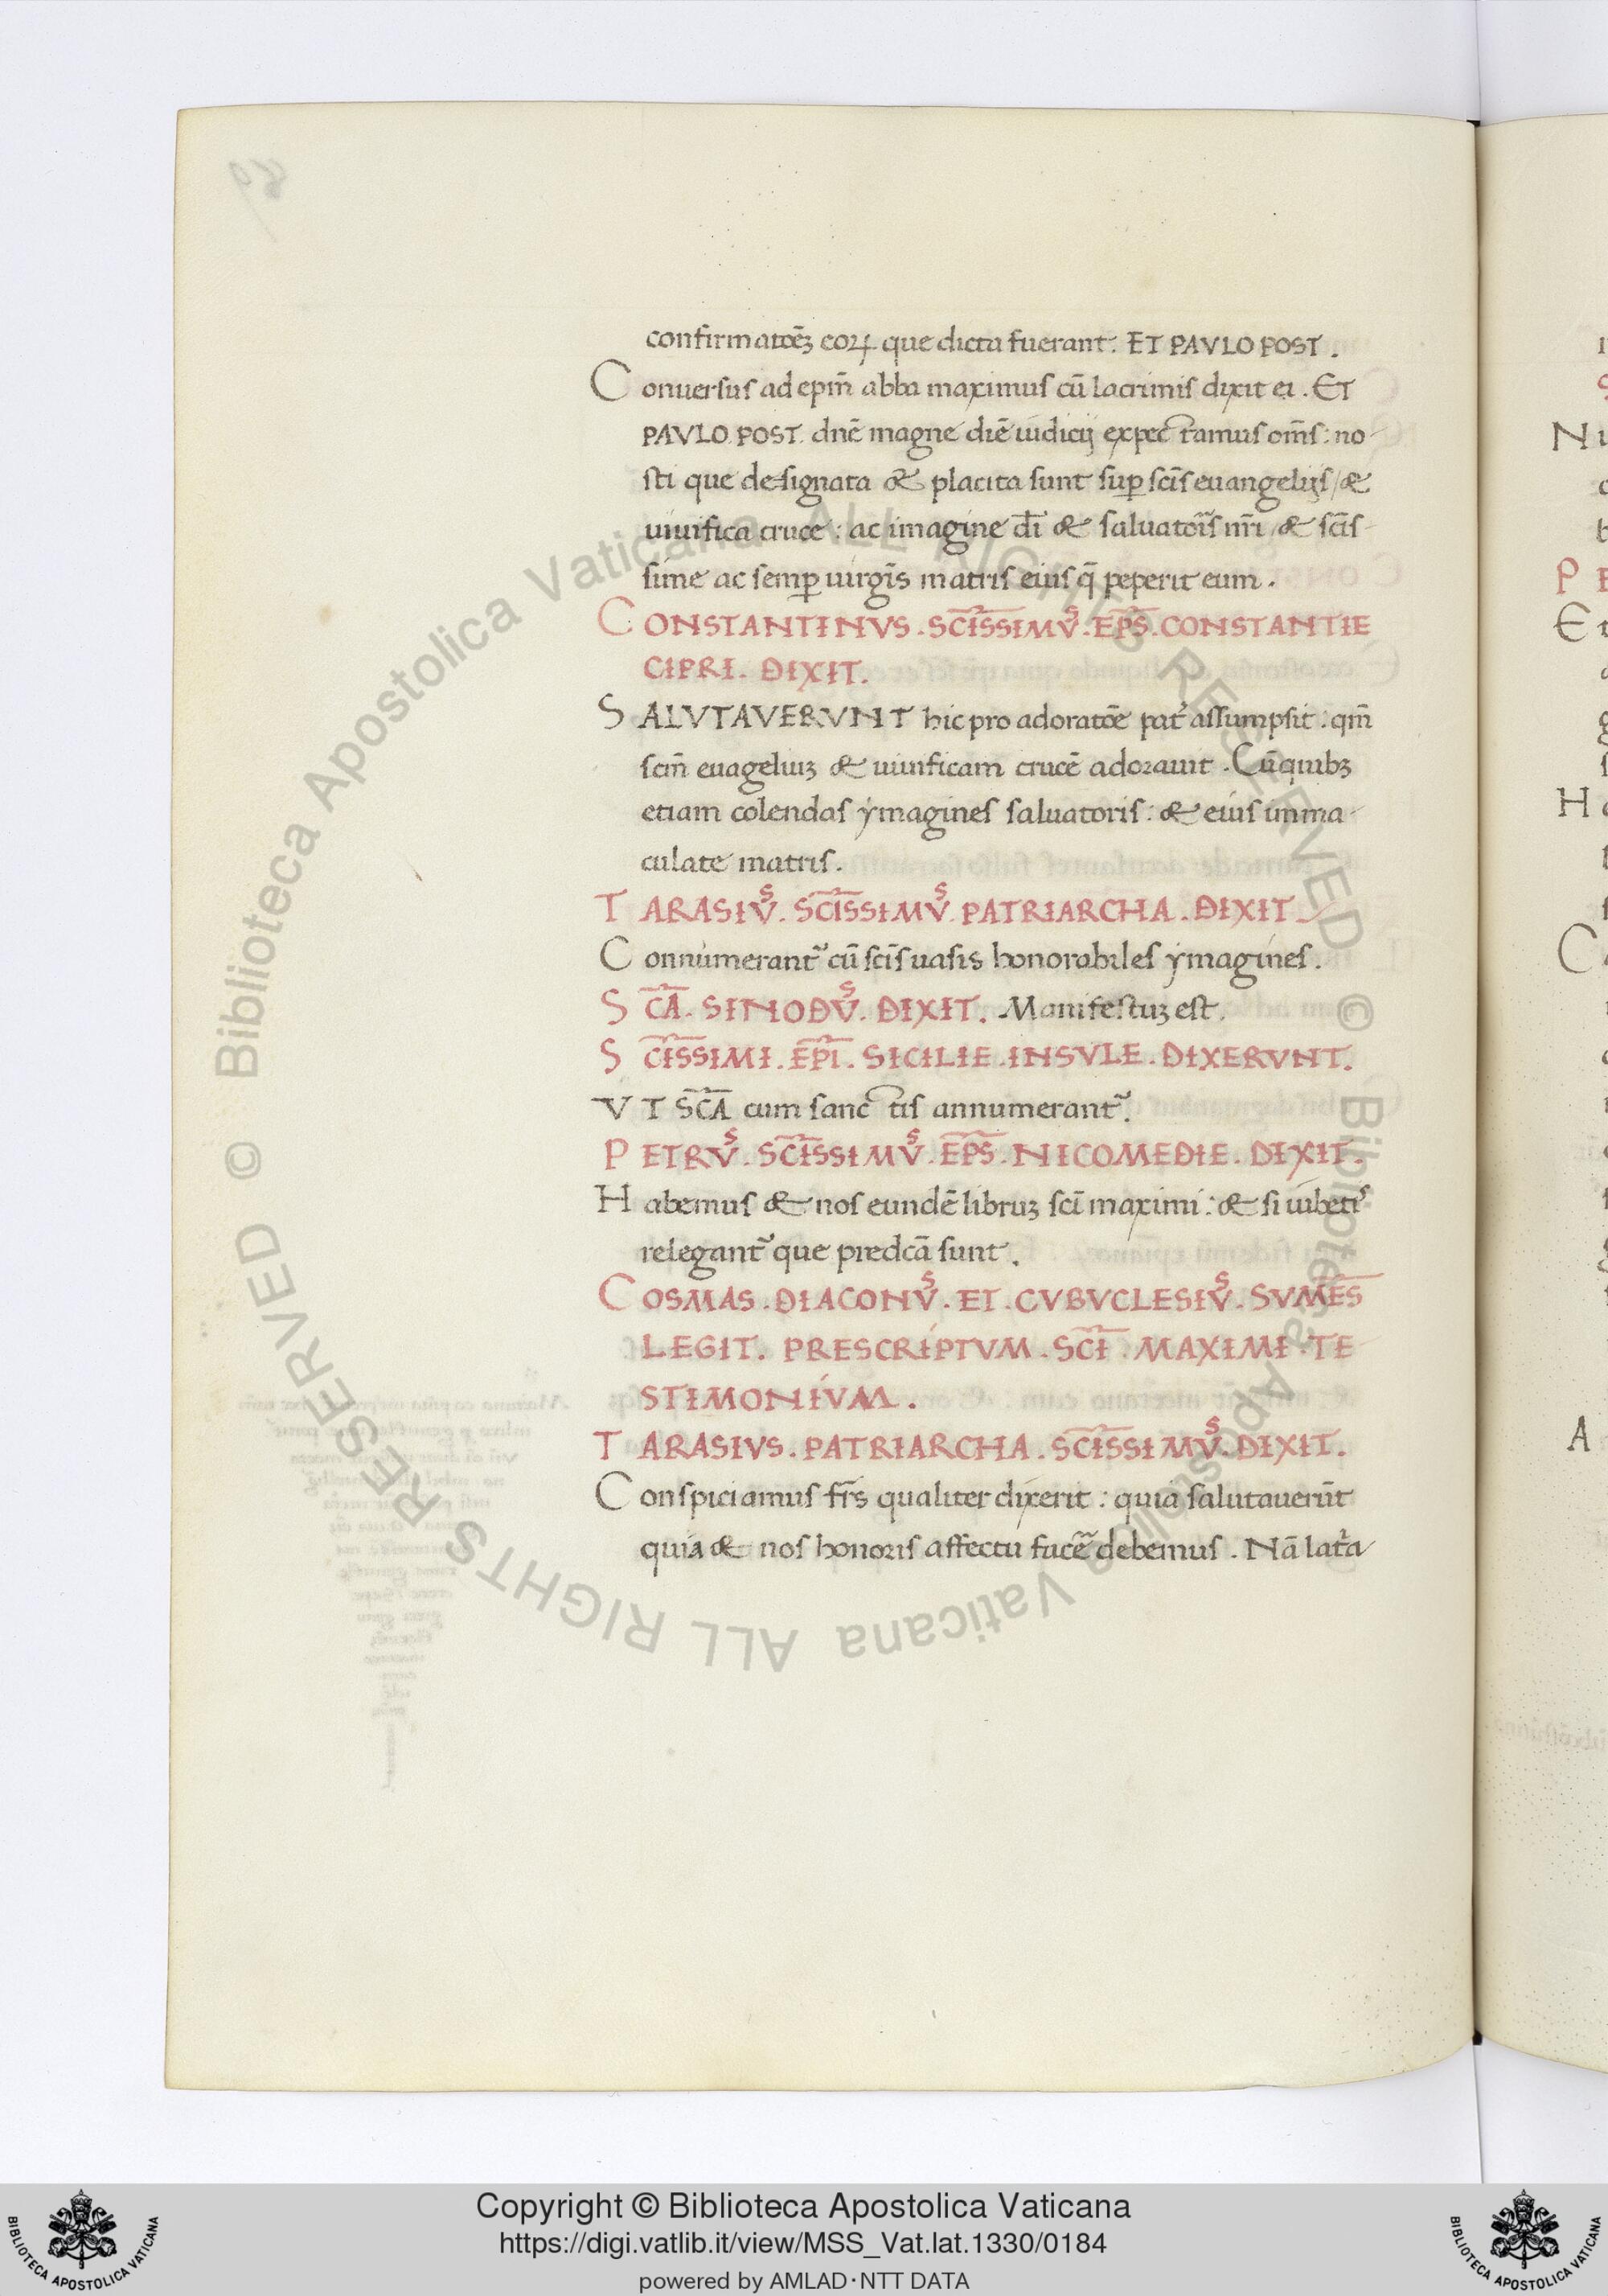 confirmatōeꝫ eoꝝ que dicta fuerant. ET PAVLO POST.
Conuersus ad epm̄ abba maximus cū lacrimis dixit ei. Et
PAVLO POST. dn̄e magne diē iudicij expectamus om̄s: no-
sti que designata & placita sunt suꝑ scīs euangelijs/&
uiuifica cruce: ac imagine dī & saluatoīs nr̄i/& scīs-
sime ac semꝑ uirgīs matris eius q̄ peperit eum.
CONSTANTINVS. SCĪSSIMVˢ. EPS̄. CONSTANTIE
CIPRI. DIXIT.
SALVTAVERVNT hic pro adoratōe pat' assumpsit: qm̄
scm̄ euageliuꝫ & uiuificam crucē adorauit. Cū quibꝫ
etiam colendas ymagines saluatoris: & eius imma-
culate matris.
TARASIVˢ. SCĪSSIMVˢ. PATRIARCHA. DIXIT
Connumerant' cū scīs uasis honorabiles ymagines.
SCĀ. SINODVˢ. DIXIT. Manifestuꝫ est.
SCĪSSIMI. EPĪ. SICILIE. INSVLE. DIXERVNT.
VT SCĀ cum sanctis annumerant'.
PETRVˢ. SCĪSSIMVˢ. EPS̄. NICOMEDIE. DIXIT.
Habemus & nos eundē libruꝫ scī maximi: & si iubetˢ
relegant' que predcā sunt.
COSMAS. DIACONVˢ. ET. CVBVCLESIVˢ. SVMĒS
LEGIT. PRESCRIPTVM. SCĪ. MAXIMI. TE
STIMONIVM.
TARASIVS. PATRIARCHA. SCĪSSIMVˢ. DIXIT.
Conspiciamus fr̄s qualiter dixerit: quia salutauerūt
quia & nos honoris affectu facē debemus. Nā lat'a-
Copyright © Biblioteca Apostolica Vaticana
https://digi.vatlib.it/view/MSS_Vat.lat.1330/0184
powered by AMLAD·NTT DATA